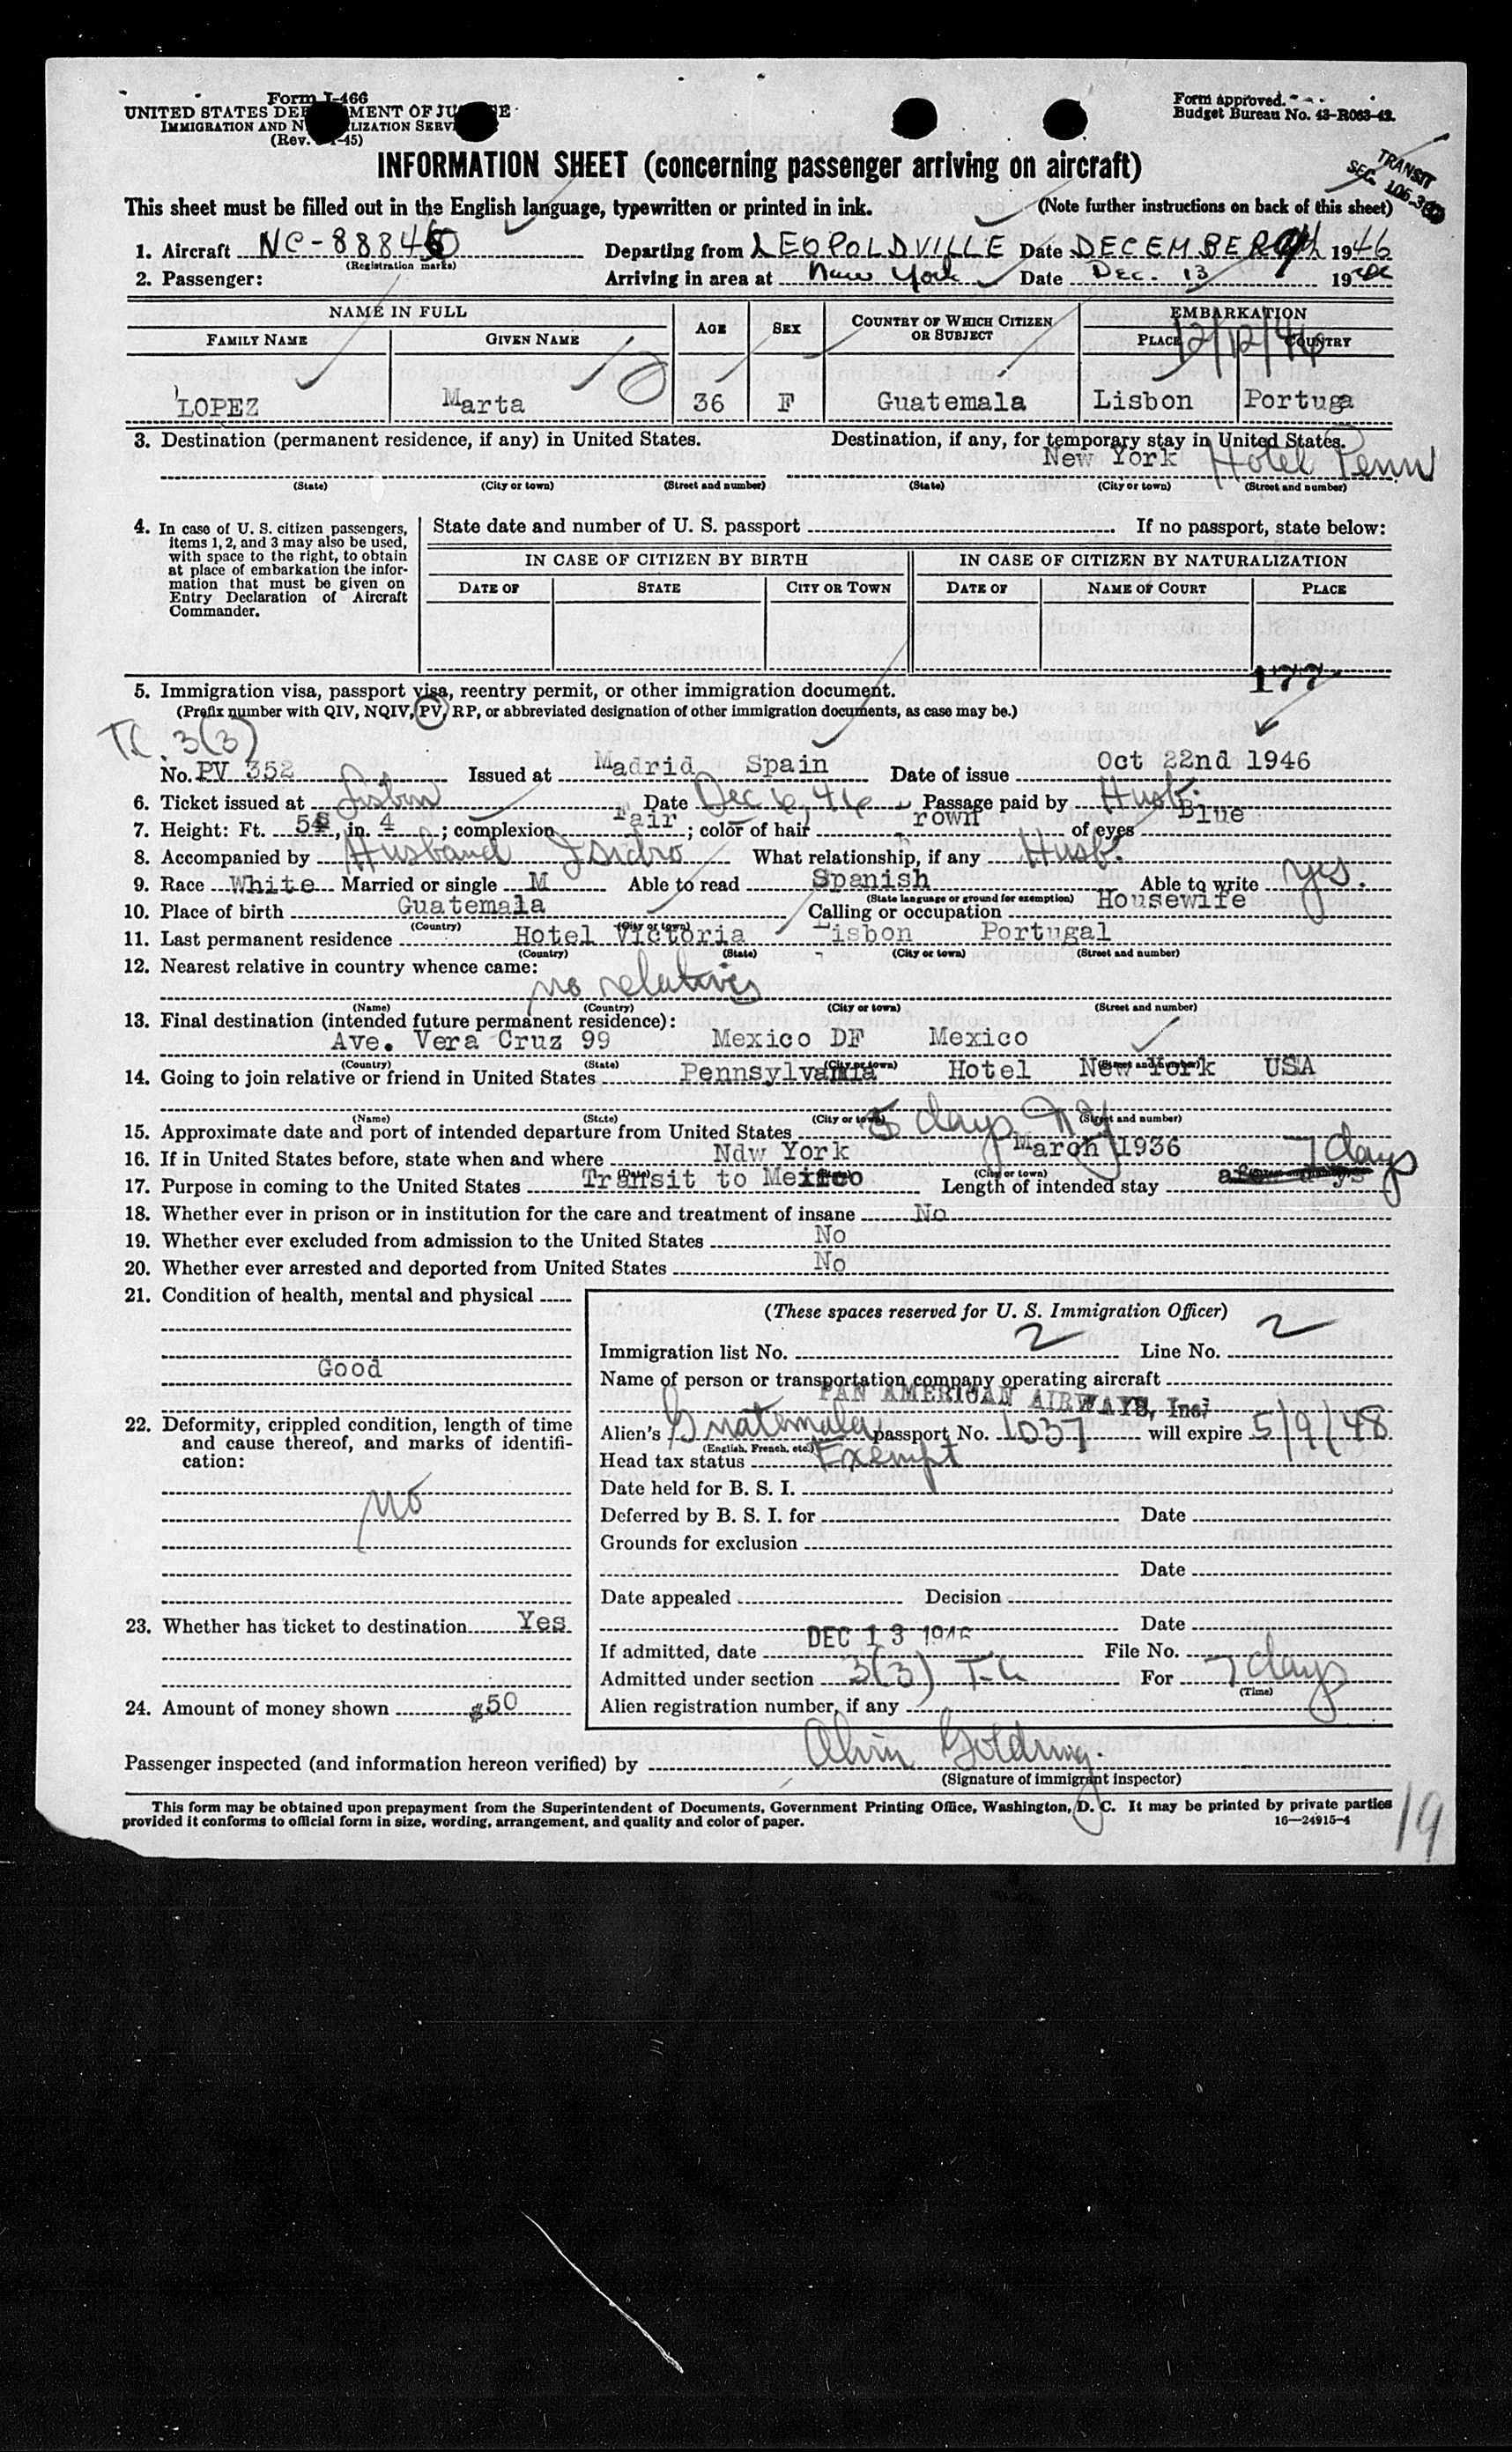 Form I-466
UNITED STATES DEP MENT OF JU E
IMMIGRATION AND N LIZATION SERV
(Rev. -45)
Form approved.
Budget Bureau No. 43-R063-42.
TRANSIT
SEC.
INFORMATION SHEET (concerning passenger arriving on aircraft)
This sheet must be filled out in the English language, typewritten or printed in ink. (Note further instructions on back of this sheet)
1. Aircraft NC-88846 Departing from LEOPOLDVILLE Date DECEMBER 1946
(Registration marks)
2. Passenger: Arriving in area at New York Date Dec. 13 19
NAME IN FULL AGE SEX COUNTRY OF WHICH CITIZEN OR SUBJECT EMBARKATION
FAMILY NAME GIVEN NAME PLACE COUNTRY
12/12/46
LOPEZ Marta 36 F Guatemala Lisbon Portuga
3. Destination (permanent residence, if any) in United States. Destination, if any, for temporary stay in United States.
New York Hotel Penn
(State) (City or town) (Street and number) (State) (City or town) (Street and number)
4. In case of U. S. citizen passengers, items 1, 2, and 3 may also be used, with space to the right, to obtain at place of embarkation the information that must be given on Entry Declaration of Aircraft Commander.
State date and number of U. S. passport If no passport, state below:
IN CASE OF CITIZEN BY BIRTH IN CASE OF CITIZEN BY NATURALIZATION
DATE OF STATE CITY OR TOWN DATE OF NAME OF COURT PLACE
177
5. Immigration visa, passport visa, reentry permit, or other immigration document.
(Prefix number with QIV, NQIV, PV, RP, or abbreviated designation of other immigration documents, as case may be.)
T.C. 3(3)
No. PV 352 Issued at Madrid Spain Date of issue Oct 22nd 1946
6. Ticket issued at Lisbon Date Dec 6, 46 Passage paid by Husb.
7. Height: Ft. 5, in. 4; complexion Fair; color of hair rown of eyes Blue
8. Accompanied by Husband Isidro What relationship, if any Husb.
9. Race White Married or single M Able to read Spanish Able to write yes.
(State language or ground for exemption)
10. Place of birth Guatemala Calling or occupation Housewife
(Country) (City or town)
11. Last permanent residence Hotel Victoria Lisbon Portugal
(Country) (State) (City or town) (Street and number)
12. Nearest relative in country whence came:
no relatives
(Name) (Country) (City or town) (Street and number)
13. Final destination (intended future permanent residence):
Ave. Vera Cruz 99 Mexico DF Mexico
(Country) (State) (City or town) (Street and number)
14. Going to join relative or friend in United States Pennsylvania Hotel New York USA
(Name) (State) (City or town) (Street and number)
15. Approximate date and port of intended departure from United States 5 days NY
16. If in United States before, state when and where Ndw York March 1936
(Date) (City or town)
7 days
17. Purpose in coming to the United States Transit to Mexico Length of intended stay
18. Whether ever in prison or in institution for the care and treatment of insane No
19. Whether ever excluded from admission to the United States No
20. Whether ever arrested and deported from United States No
21. Condition of health, mental and physical
Good
22. Deformity, crippled condition, length of time and cause thereof, and marks of identification:
no
23. Whether has ticket to destination Yes
24. Amount of money shown $50
(These spaces reserved for U. S. Immigration Officer)
Immigration list No. 2 Line No. 2
Name of person or transportation company operating aircraft
PAN AMERICAN AIRWAYS, Inc.
Alien's Guatemala passport No. 1037 will expire 5/9/48
(English, French, etc.)
Head tax status Exempt
Date held for B. S. I.
Deferred by B. S. I. for Date
Grounds for exclusion
Date
Date appealed Decision
Date
If admitted, date DEC 13 1946 File No.
Admitted under section 3(3) T.C. For 7 days
(Time)
Alien registration number, if any
Passenger inspected (and information hereon verified) by Alvin Goldring.
(Signature of immigrant inspector)
This form may be obtained upon prepayment from the Superintendent of Documents, Government Printing Office, Washington, D. C. It may be printed by private parties
provided it conforms to official form in size, wording, arrangement, and quality and color of paper. 16—24915-4
19